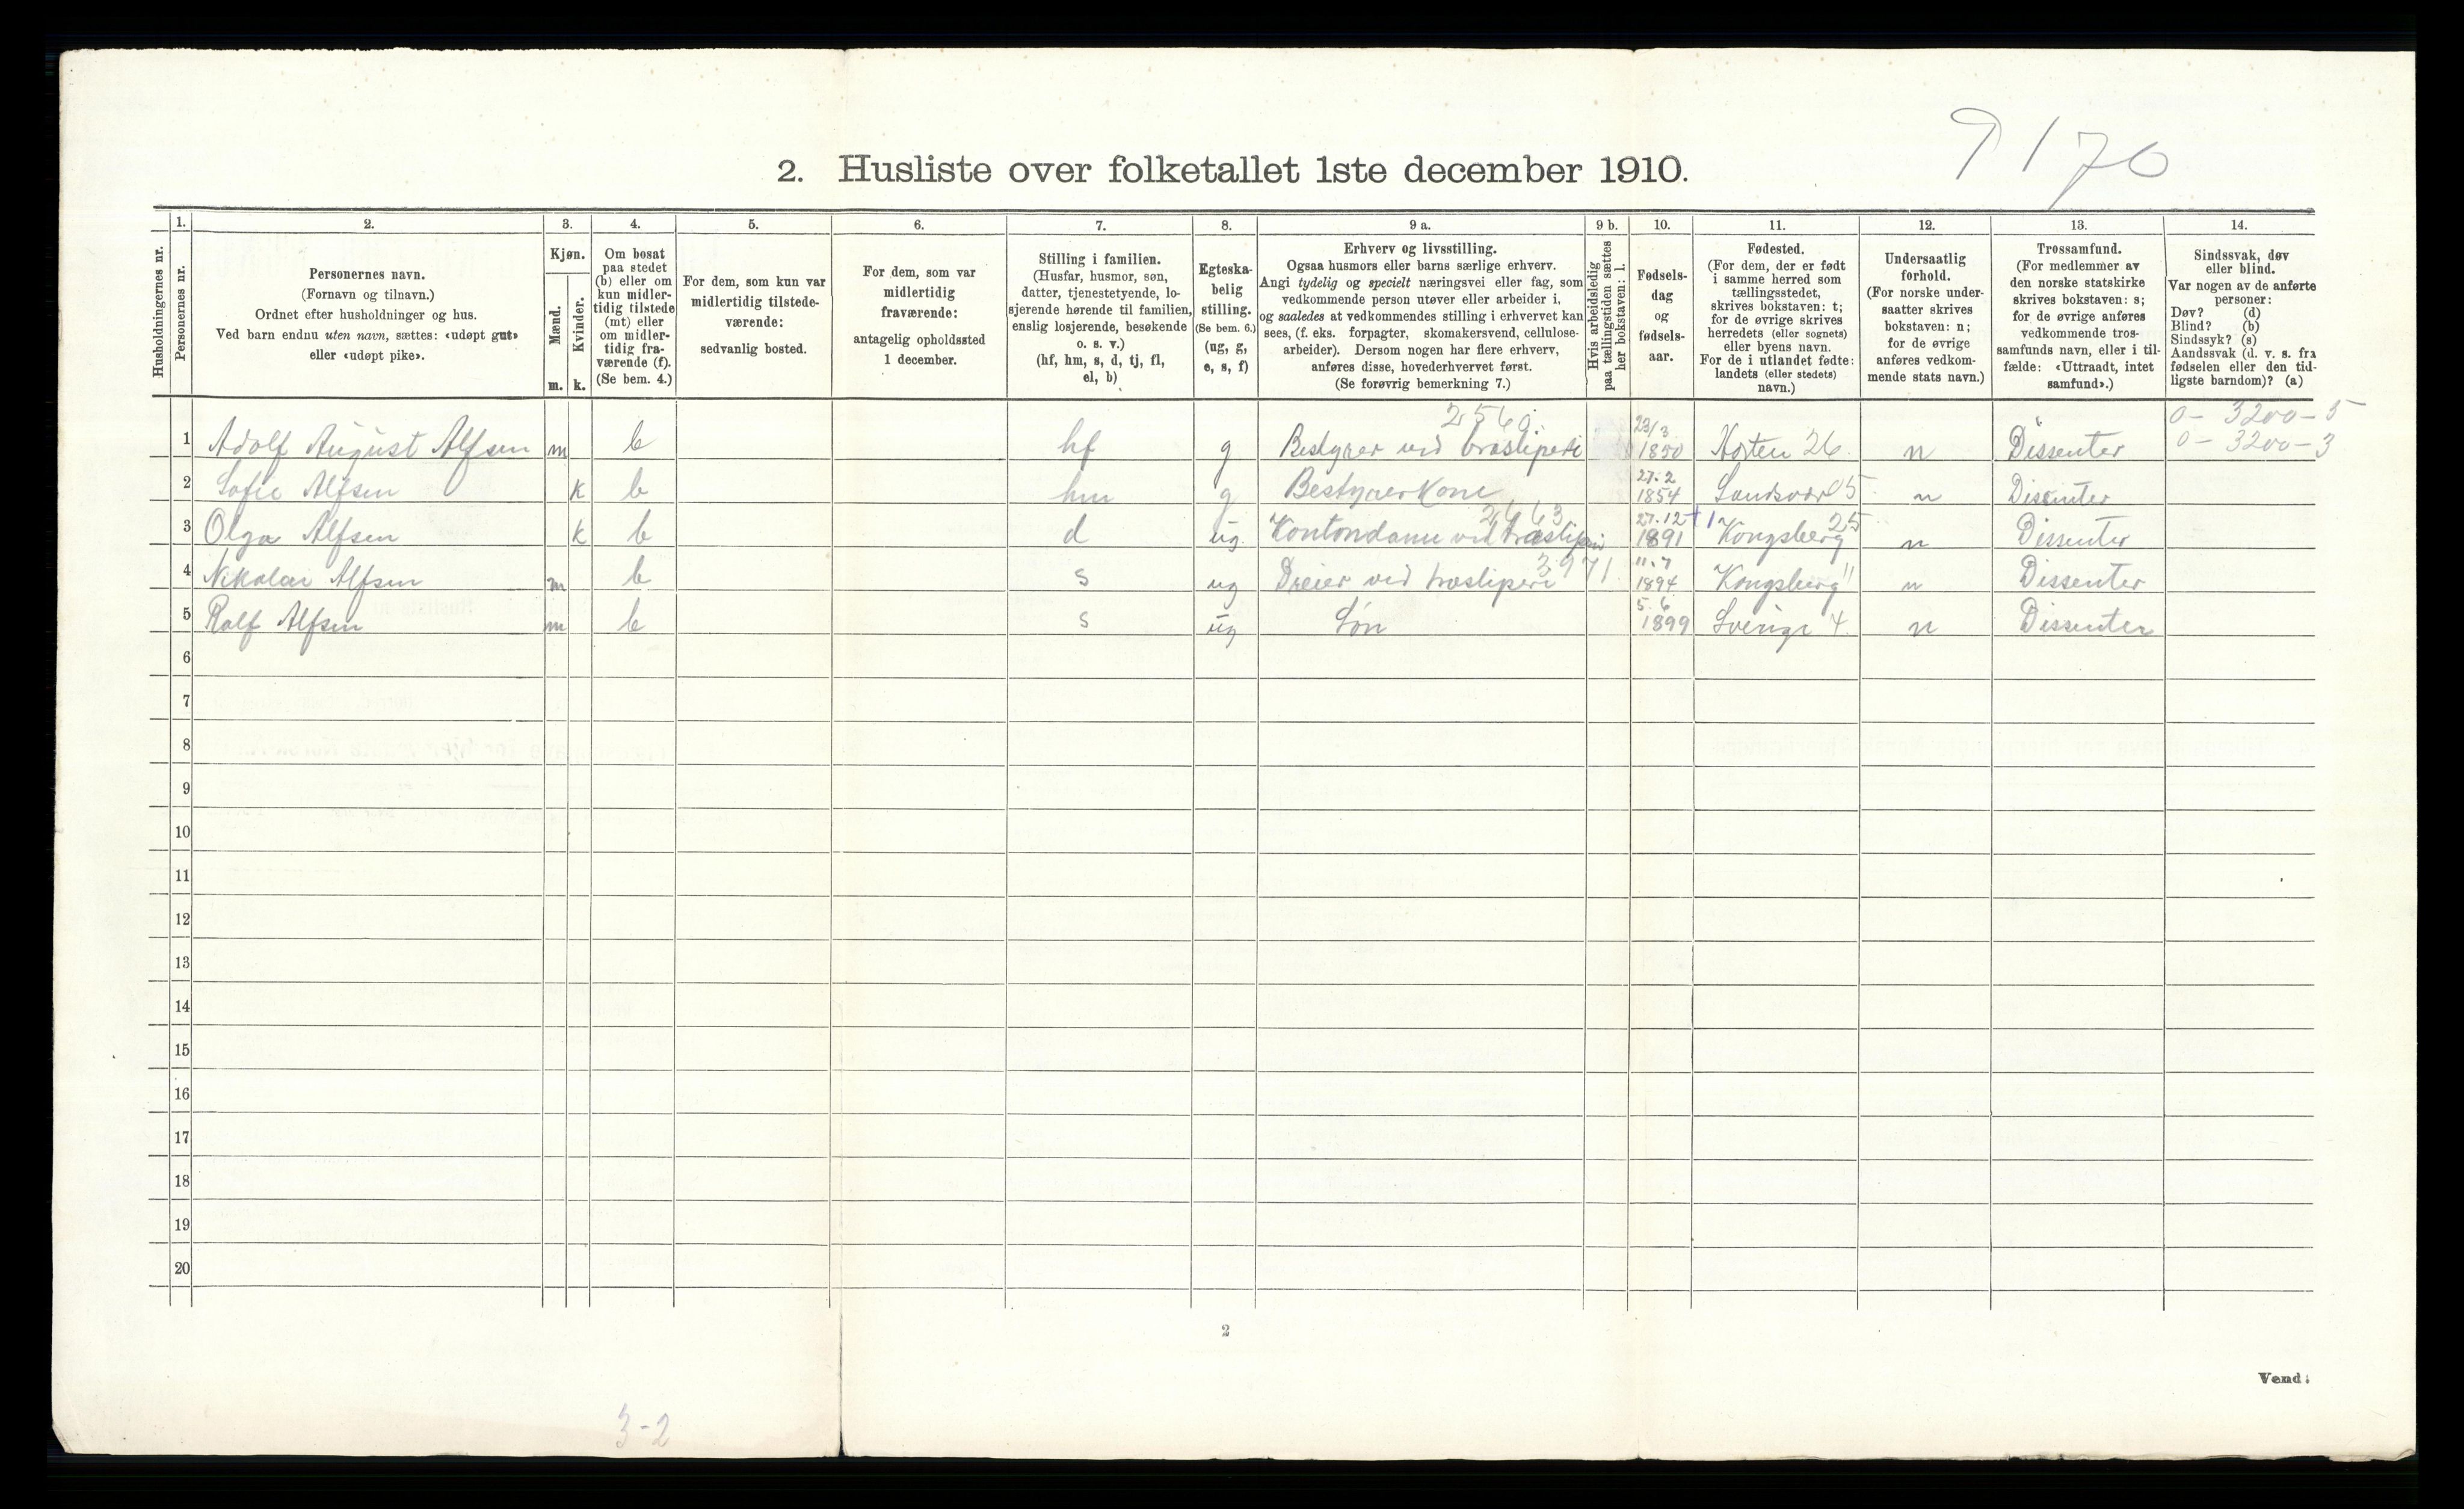 9170
2. Husliste over folketallet 1ste december 1910.
Husholdningernes nr.
1. Personernes nr.
2.
Personernes navn.
(Fornavn og tilnavn.)
Ordnet efter husholdninger og hus.
Ved barn endnu uten navn, sættes: «udøpt gut»
eller «udøpt pike».
3.
Kjøn.
Mænd. Kvinder.
m. k.
4.
Om bosat
paa stedet
(b) eller om
kun midler-
tidig tilstede
(mt) eller
om midler-
tidig fra-
værende (f).
(Se bem. 4.)
5.
For dem, som kun var
midlertidig tilstede-
værende:
sedvanlig bosted.
6.
For dem, som var
midlertidig
fraværende:
antagelig opholdssted
1 december.
7.
Stilling i familien.
(Husfar, husmor, søn,
datter, tjenestetyende, lo-
sjerende hørende til familien,
enslig losjerende, besøkende
o. s. v.)
(hf, hm, s, d, tj, fl,
el, b)
8.
Egteska-
belig
stilling.
(Se bem. 6.)
(ug, g,
e, s, f)
9 a.
Erhverv og livsstilling.
Ogsaa husmors eller barns særlige erhverv.
Angi tydelig og specielt næringsvei eller fag, som
vedkommende person utøver eller arbeider i,
og saaledes at vedkommendes stilling i erhvervet kan
sees, (f. eks. forpagter, skomakersvend, cellulose-
arbeider). Dersom nogen har flere erhverv,
anføres disse, hovederhvervet først.
(Se forøvrig bemerkning 7.)
9 b.
Hvis arbeidsledig
paa tællingstiden sættes
her bokstaven: l.
10.
Fødsels-
dag
og
fødsels-
aar.
11.
Fødested.
(For dem, der er født
i samme herred som
tællingsstedet,
skrives bokstaven: t;
for de øvrige skrives
herredets (eller sognets)
eller byens navn.
For de i utlandet fødte:
landets (eller stedets)
navn.)
12.
Undersaatlig
forhold.
(For norske under-
saatter skrives
bokstaven: n;
for de øvrige
anføres vedkom-
mende stats navn.)
13.
Trossamfund.
(For medlemmer av
den norske statskirke
skrives bokstaven: s;
for de øvrige anføres
vedkommende tros-
samfunds navn, eller i til-
fælde: «Uttraadt, intet
samfund».)
14.
Sindssvak, døv
eller blind.
Var nogen av de anførte
personer:
Døv? (d)
Blind? (b)
Sindssyk? (s)
Aandssvak (d. v. s. fra
fødselen eller den tid-
ligste barndom)? (a)
2560 0- 3200-5
1 Adolf August Alfsen m b hf g Bestyrer ved træsliperi 23/3 1850 Horten 26 n Dissenter 0- 3200-3
2 Sofie Alfsen k b hm g Bestyrer Kone 27.2 1854 05 n Dissenter
2663
3 Olga Alfsen k b d ug. ved træsliperi 27.12 1891 Kongsberg 25 n Dissenter
3971
4 Nikolai Alfsen m b s ug Dreier ved træsliperi 11.7 1894 Kongsberg " n Dissenter
5 Ralf Alfsen m b s ug Søn 5.6 1899 Sverige 4 n Dissenter
6
7
8
9
10
11
12
13
14
15
16
17
18
19
20
2
Vend!
3-2